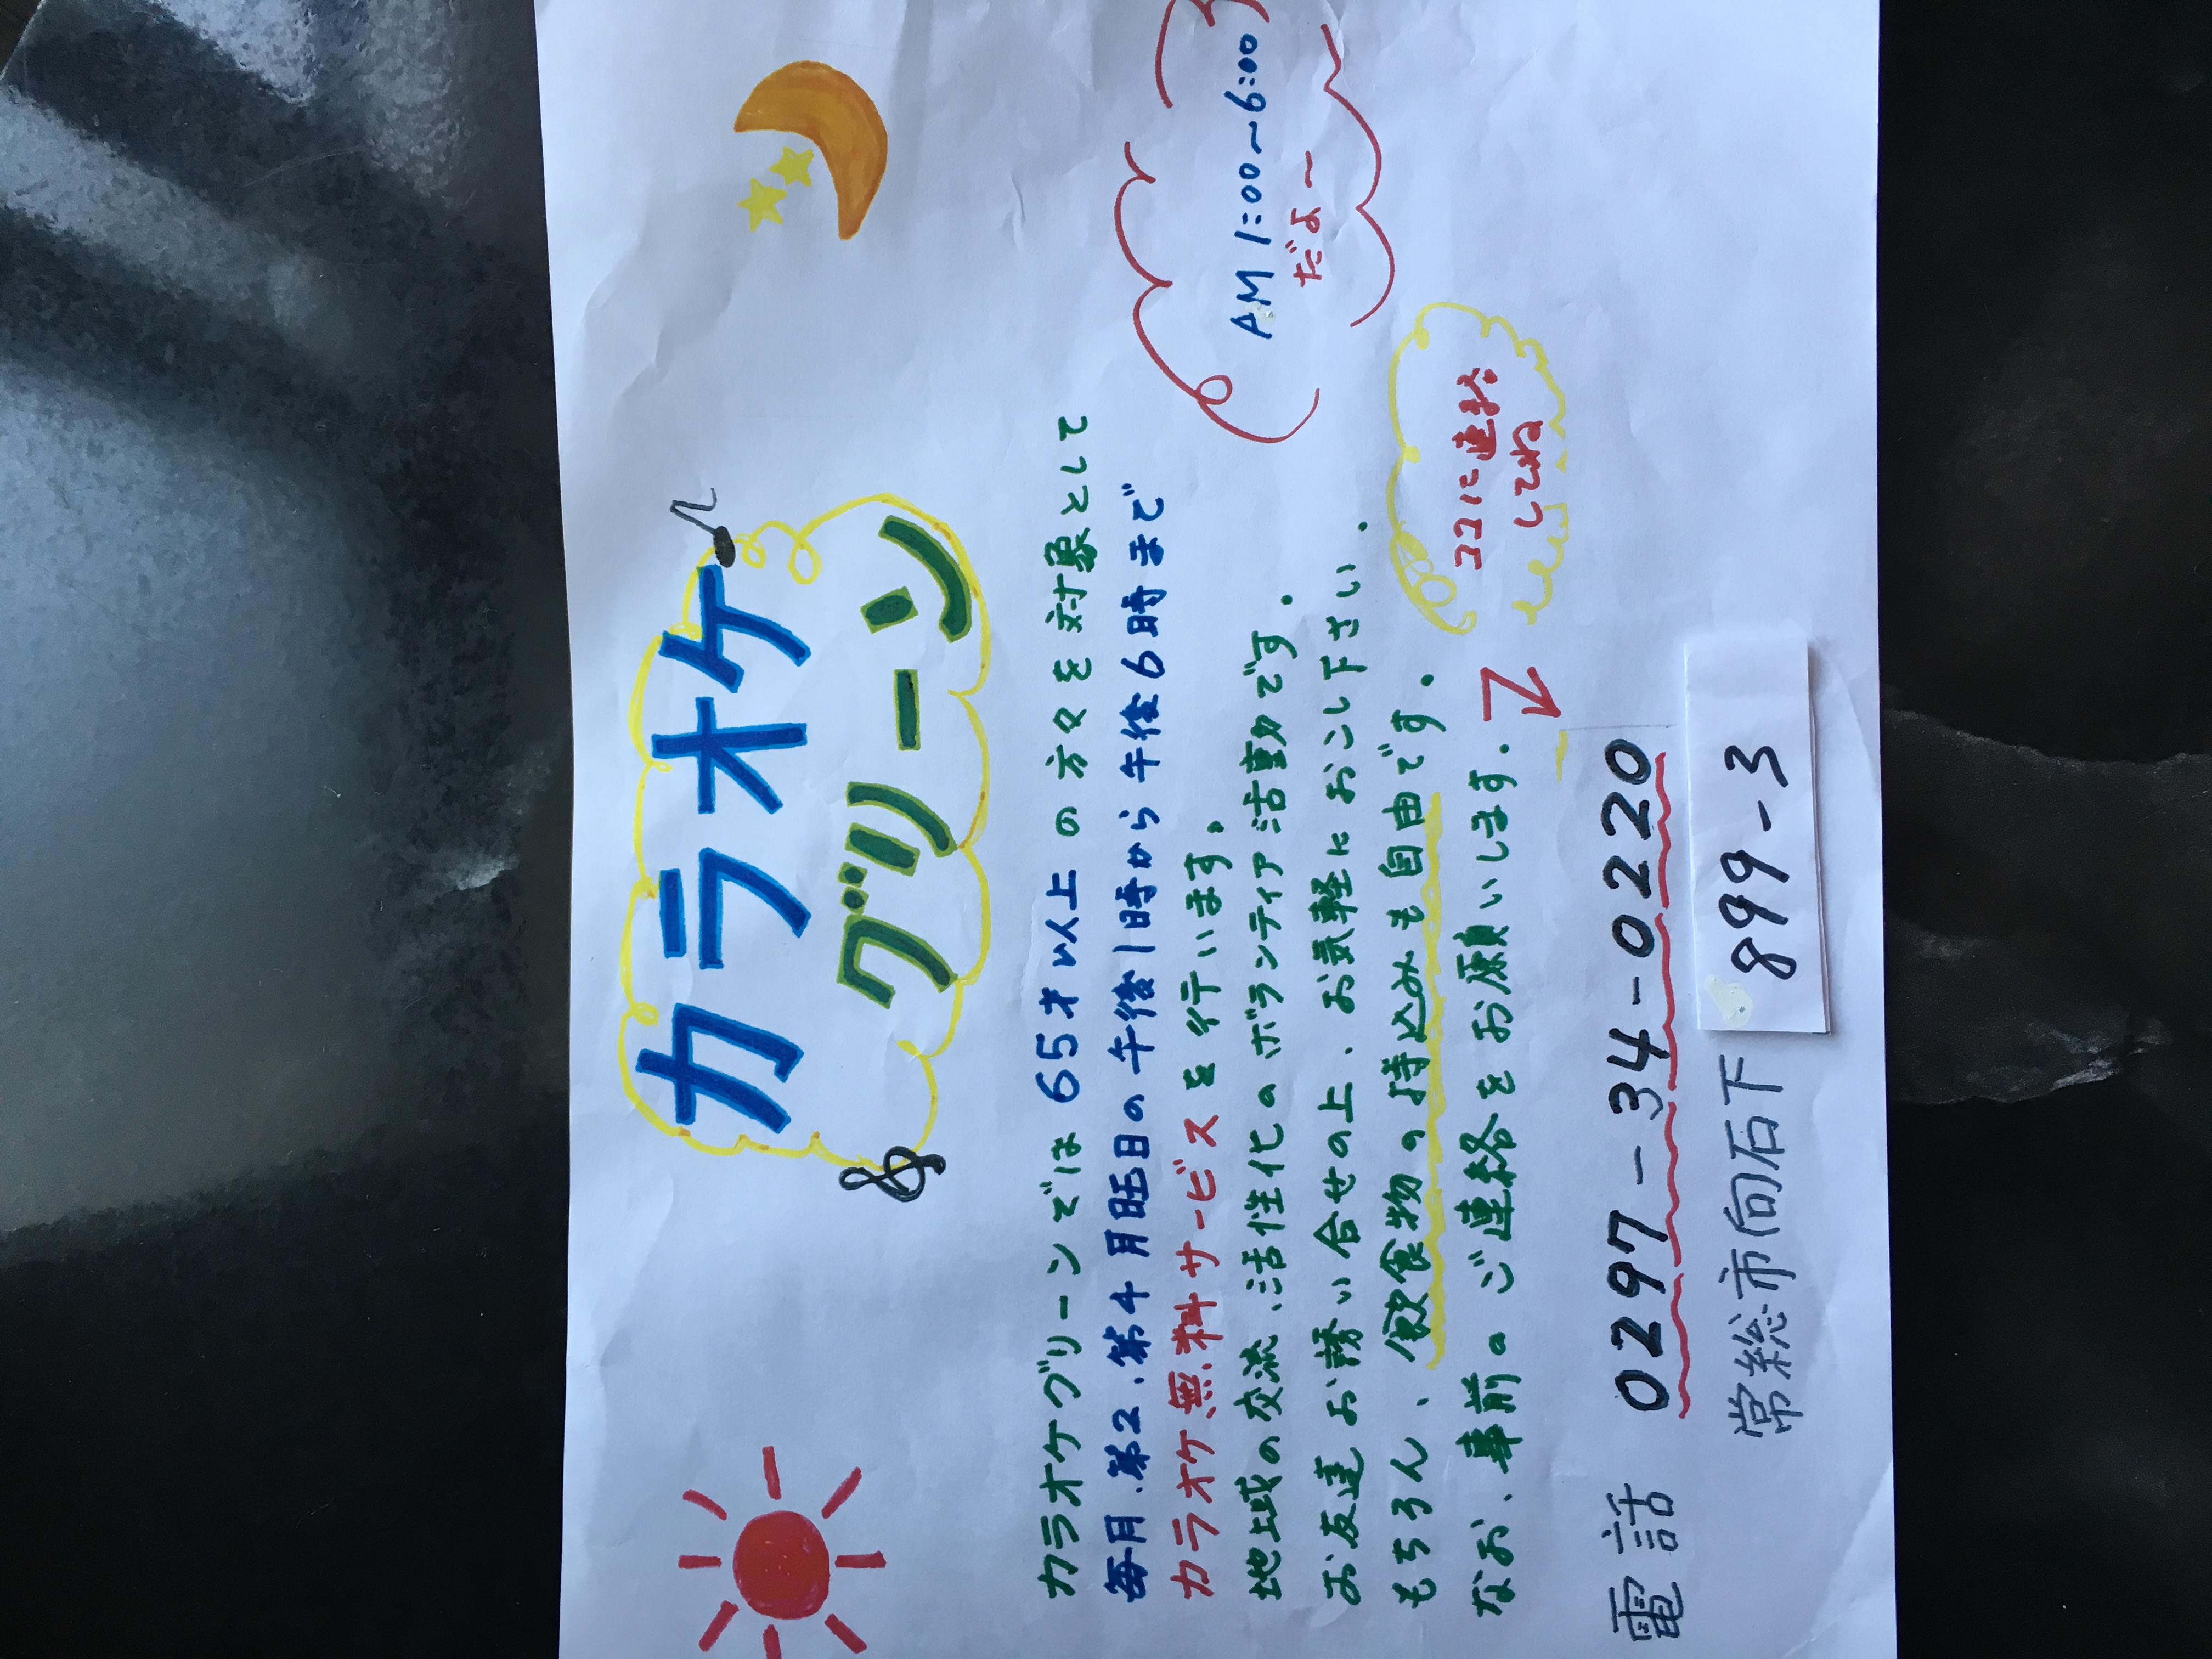 カラオケ
グリーン
カラオケグリーンでは65才以上の方々を対象として
毎月、第2、第4月旺日の午後1時から午後6時まで
カラオケ無料サービスを行います。
地域の交流、活性化のボランティア活動です。
お友達お誘い合せの上、お気軽におこし下さい。
もちろん、飲食物の持込みも自由です。
なお、事前のご連絡をお願いします。
AM 1:00〜6:00
だよ〜
ココに連絡
してね
電話 0297-34-0220
常総市向石下 899-3